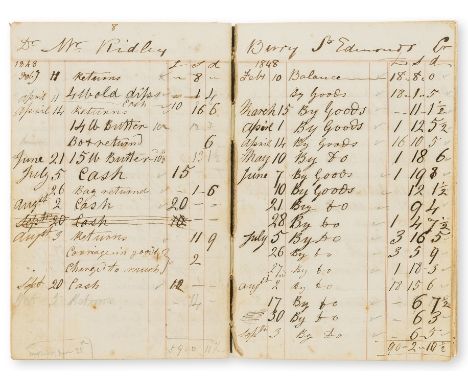 8
Dr Mr Ridley
1848 £ s d
11 Returns 8
April 11
Cash 10
April 14 Returns 16 6
14 lb Butter
Box return 6
June 21 15 lb Butter
July 5 Cash 15
26 Bag returned 1-6
Augst 2 Cash 20
Septr 20 Cash 18
Augst 3 Returns 11 9
Carriage in goods 2
Change to much
Sept 20 Cash 12
Returns 4
Berry St Edmonds Cr
1848 £ s d
Feb 10 Balance 18 8 0
By Goods 18-1-5
March 15 By Goods 11-1½
April 1 By Goods 1 12 5½
April 14 By Goods 16 10 5
May 10 By do 1 18 6
June 1 By Goods 1 19 8
10 By Goods 12 1½
21 By do 9 4
28 By do 1 4 7½
July 5 By do 3 16 5
26 By do 3 5 9
27 by do 1 18 3
Augst 2 By do 18 15 6
17 By do 6 7½
30 By do 6 3
Septr 3 By do 6-3
90-2-10½